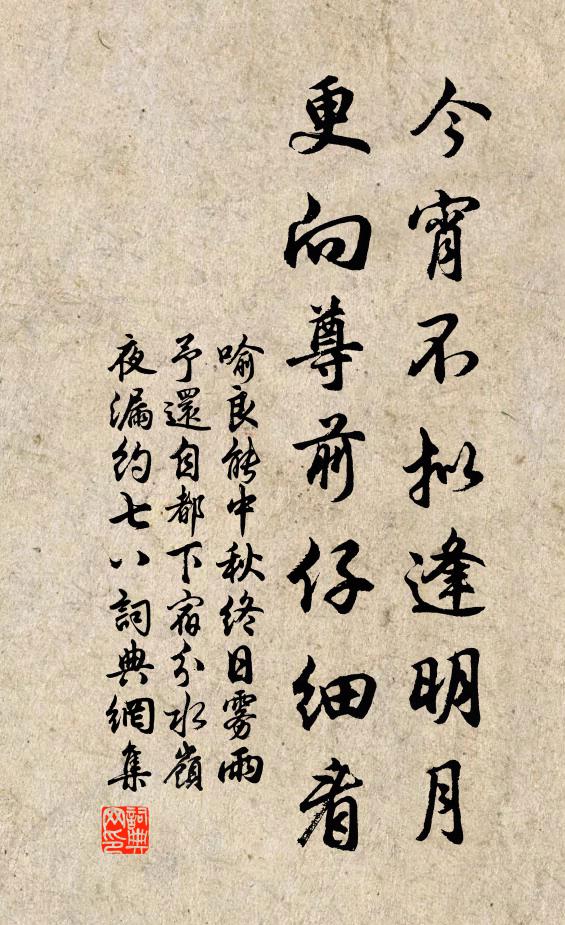 今宵不拟逢明月
更向尊前仔细看
喻良能中秋終日雾雨
予還自都下宿分水嶺
夜漏約七八詞典網集
詞典
网印